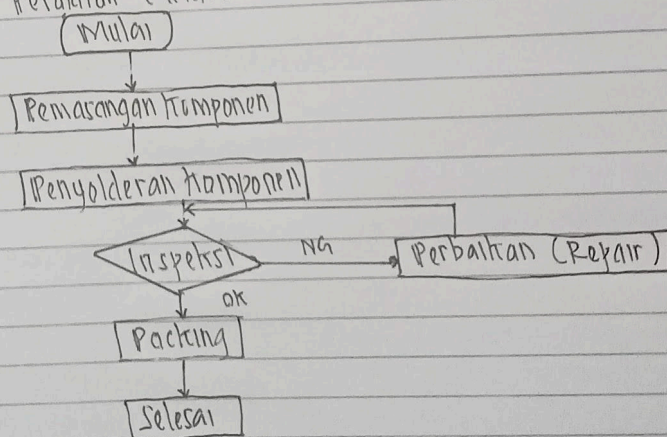 Mulai
Pemasangan Komponen
Penyolderan Komponen
Inspeksi
NG
Perbaikan (Repair)
OK
Packing
Selesai